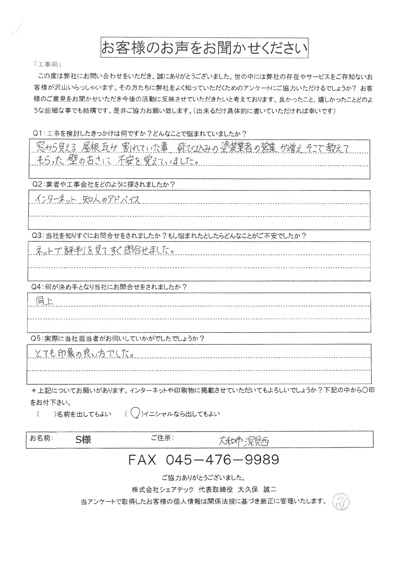 お客様のお声をお聞かせください
「工事前」
この度は弊社にお問い合わせをいただき、誠にありがとうございました。世の中には弊社の存在やサービスをご存知ないお
客様が沢山いらっしゃいます。その方たちに弊社をよく知っていただくためのアンケートにご協力いただけるでしょうか？ お客
様のご意見をお聞かせいただき今後の活動に反映させていただきたいと考えております。良かったこと、嬉しかったことどのよ
うな些細な事でも結構です、是非ご協力お願い致します。(出来るだけ具体的に書いていただければ幸いです)
Q1：工事を検討したきっかけは何ですか？どんなことで悩まれていましたか？
窓から見える 屋根瓦が割れていた事、飛び込みの塗装業者の営業が増え そこで教えて
もらった 壁の古さに 不安を覚えていました。
Q2：業者や工事会社をどのように探されましたか？
インターネット 知人のアドバイス
Q3：当社を知りすぐにお問合せをされましたか？もし悩まれたとしたらどんなことがご不安でしたか？
ネットで評判を見てすぐ問合せました。
Q4：何が決め手となり当社にお問合せをされましたか？
同上
Q5：実際に当社担当者がお伺いしていかがでしたでしょうか？
とても印象の良い方でした。
＊上記についてお願いがあります。インターネットや印刷物に掲載させていただいてもよろしいでしょうか？下記の中から〇印
をお付下さい。
(　　)名前を出してもよい　(〇)イニシャルなら出してもよい
お名前：　S様　ご住所：　大和市深見西
FAX 045-476-9989
ご協力ありがとうございました。
株式会社シェアテック 代表取締役 大久保 誠二
当アンケートで取得したお客様の個人情報は関係法規に基づき厳正に管理いたします。